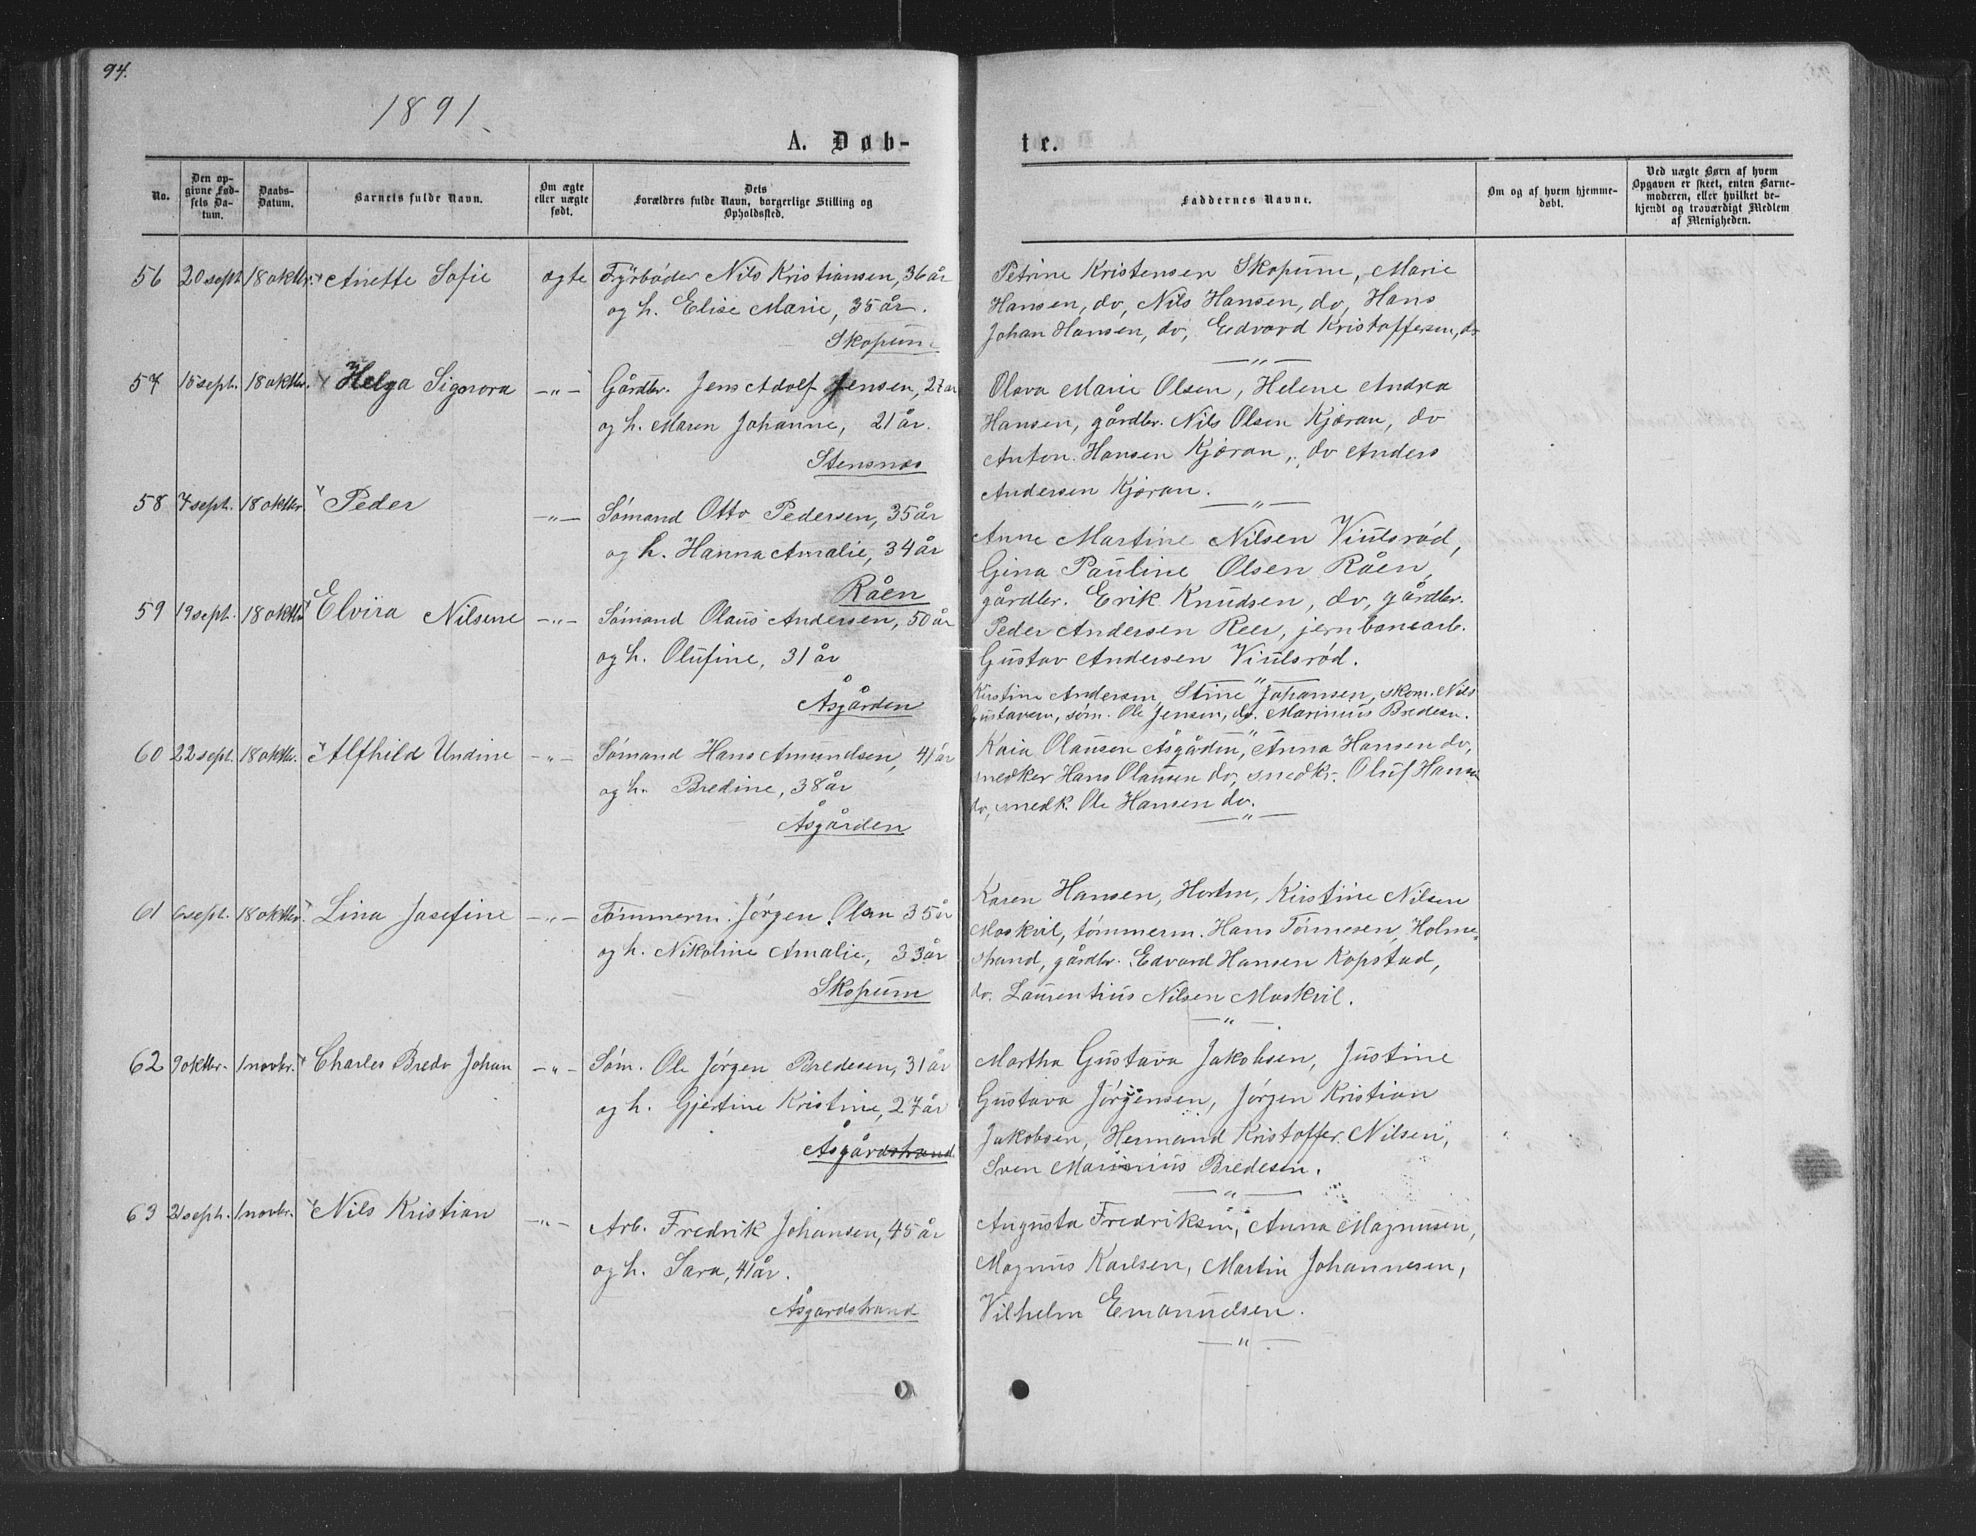 94.
1891.
A. Døb-
te.
No.
Den op-
givne Fød-
sels Da-
tum.
Daabs-
Datum.
Barnets fulde Navn.
Om ægte
eller uægte
født.
Dets
Forældres fulde Navn, borgerlige Stilling og
Opholdssted.
Faddernes Navne.
Om og af hvem hjemme-
døbt.
Ved uægte Børn af hvem
Opgaven er skeet, enten Barne-
moderen, eller hvilket be-
kjendt og troværdigt Medlem
af Menigheden.
56 20 sept 18 oktbr. Anette Sofie ægte Fyrbøder Nils Kristiansen, 36 år
og h. Elise Marie, 35 år.
Skopum
Petrine Kristensen Skopum, Marie
Hansen, do, Nils Hansen, do, Hans
Johan Hansen, do, Edvard Kristoffersen, do
—"—
57 15 sept. 18 oktbr. Helga Signora —"— Gårdbr. Jens Adolf Jensen, 27 år
og h. Maren Johanne, 21 år.
Stensnes
Olava Marie Olsen, Helene Andrea
Hansen, gårdbr. Nils Olsen Kjæran, do
Anton Hansen Kjæran, do Anders
Andersen Kjæran.
—"—
58 7 sept. 18 oktbr. Peder —"— Sømand Otto Pedersen, 35 år
og h. Hanna Amalie, 34 år
Råen
Anne Martine Nilsen Viulsrød,
Gina Pauline Olsen Råen,
gårdbr. Erik Knudsen, do, gårdbr.
Peder Andersen Reer, jernbanearb.
Gustav Andersen Viulsrød.
—"—
59 19 sept. 18 oktbr. Elvira Nilsene —"— Sømand Olaus Andersen, 50 år
og h. Olufine, 31 år
Åsgården
Kirstine Andersen, Stine Johansen, skom. Nils
Gustavsen, søm. Ole Jensen, do. Marinius Bredesen.
—"—
60 22 sept. 18 oktbr. Alfhild Undine —"— Sømand Hans Amundsen, 41 år
og h. Bredine, 38 år
Åsgården
Kaia Olausen Åsgården, Anna Hansen do,
snedker Hans Olausen do, snedkr. Oluf Hansen
do, snedk. Ole Hansen do.
—"—
61 6 sept. 18 oktbr. Lina Josefine —"— Tømmerm. Jørgen Olsen 35 år
og h. Nikoline Amalie, 33 år
Skopum
Karen Hansen, Horten, Kirstine Nilsen
Moskvil, tømmerm. Hans Tønnesen, Holme-
strand, gårdbr. Edvard Hansen Kopstad,
do. Laurentius Nilsen Moskvil.
—"—
62 9 oktbr. 1 novbr. Charles Bredo Johan —"— Søm. Ole Jørgen Bredesen, 31 år
og h. Gjertine Kristine, 27 år
Åsgårdstrand
Martha Gustava Jakobsen, Justine
Gustava Jørgensen, Jørgen Kristian
Jakobsen, Hermand Kristoffer Nilsen,
Sven Marinius Bredesen.
—"—
63 21 sept. 1 novbr. Nils Kristian —"— Arb. Fredrik Johansen, 45 år
og h. Sara, 41 år.
Åsgardstrand
Augusta Fredriksen, Anna Magnusen,
Magnus Karlsen, Martin Johannesen,
Vilhelm Emanuelsen.
—"—